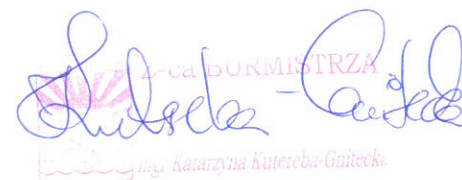 Z-ca BURMISTRZA
Kutereba-Gnitecka
mgr Katarzyna Kutereba-Gnitecka